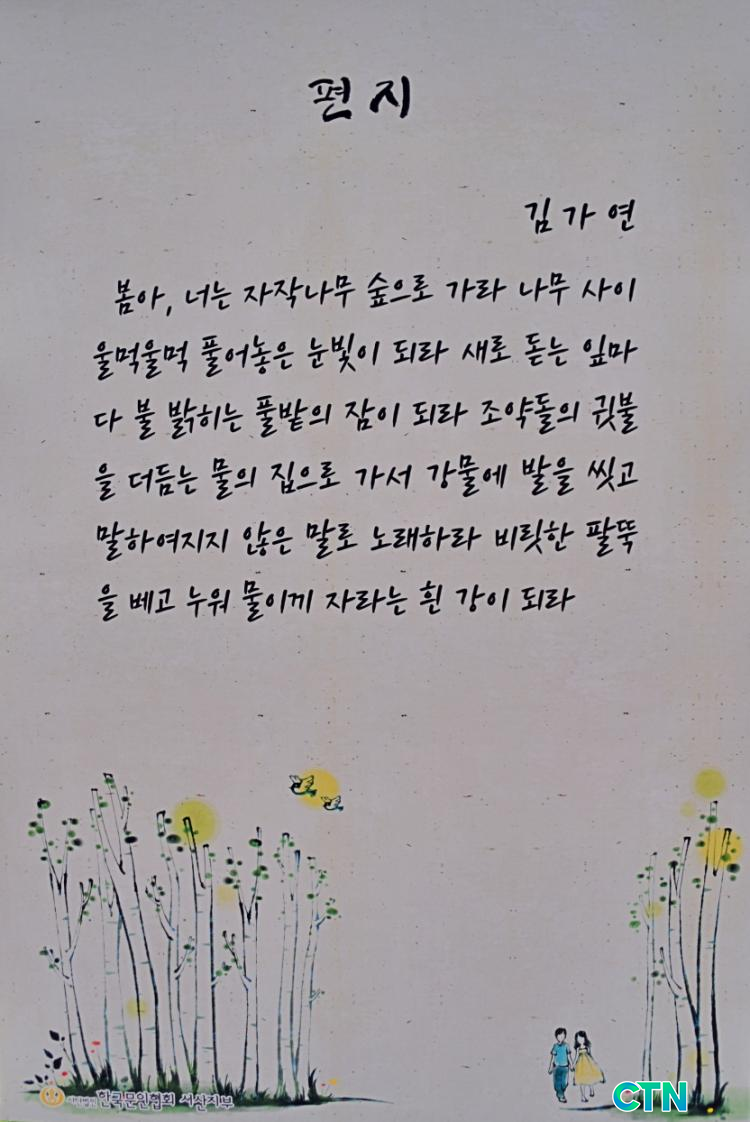 편지
김가연
봄아, 너는 자작나무 숲으로 가라 나무 사이
울먹울먹 풀어놓은 눈빛이 되라 새로 돋는 잎마
다 불 밝히는 풀밭의 잠이 되라 조약돌의 귓불
을 더듬는 물의 집으로 가서 강물에 발을 씻고
말하여지지 않은 말로 노래하라 비릿한 팔뚝
을 베고 누워 물이끼 자라는 흰 강이 되라
사단법인 한국문인협회 서산지부
CTN